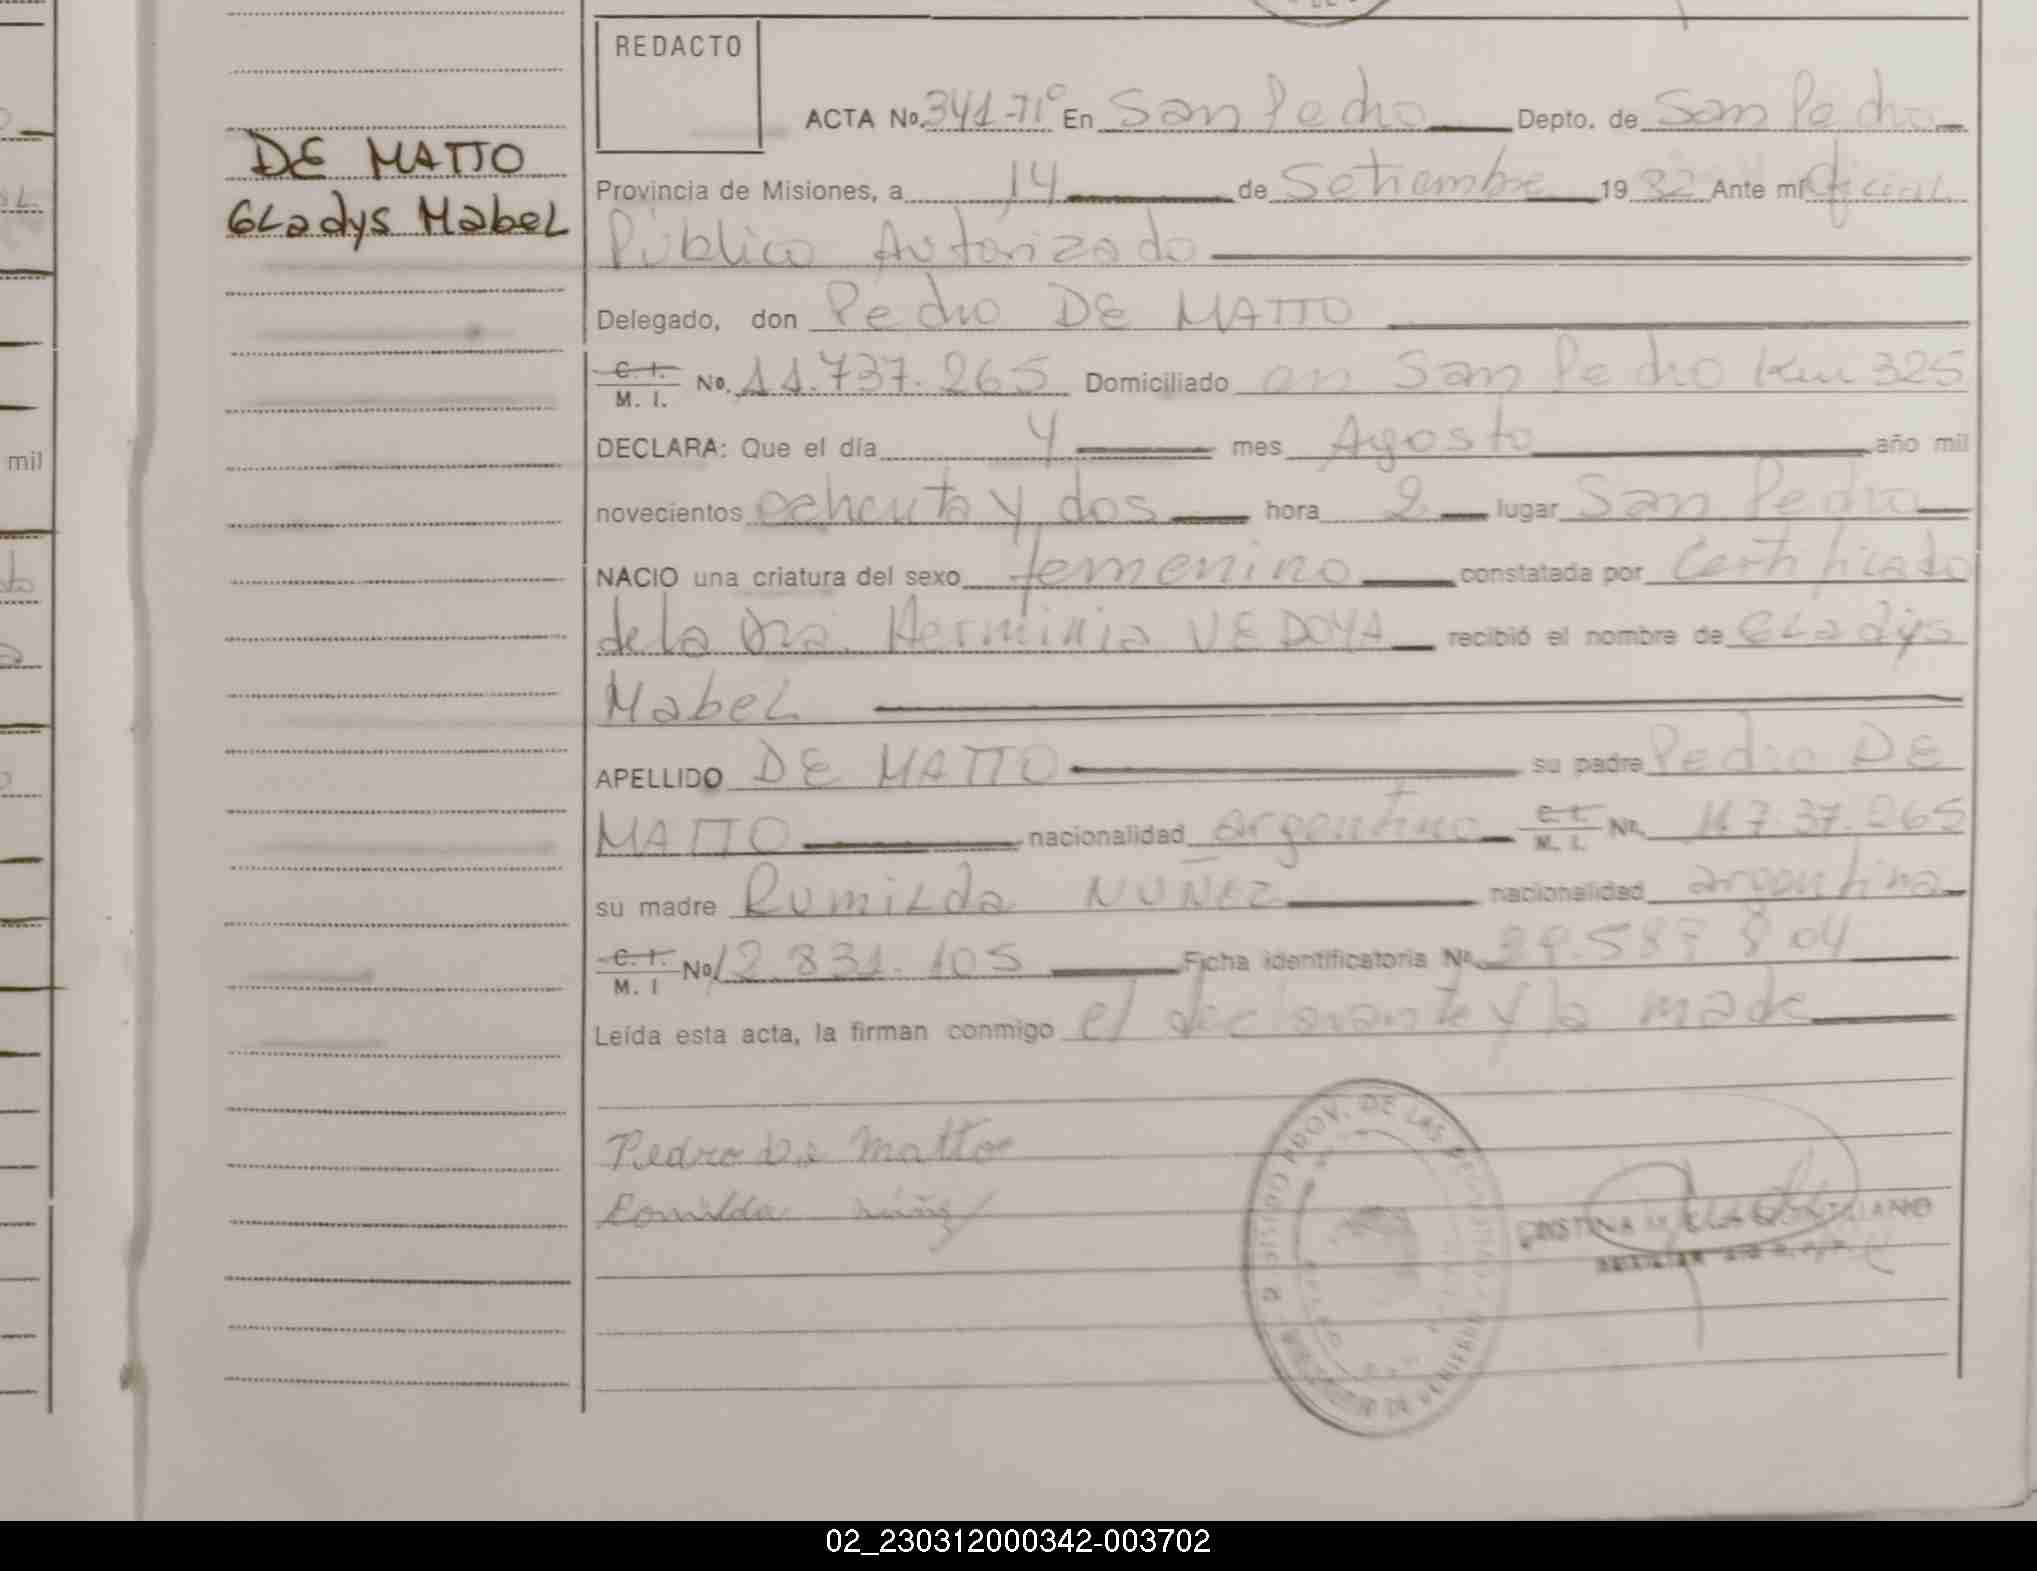 REDACTO
DE MATTO
Gladys Mabel
ACTA No. 341-71° En San Pedro Depto. de San Pedro
Provincia de Misiones, a 14 de Setiembre 1982 Ante mí Oficial
Público Autorizado
Delegado, don Pedro DE MATTO
C. I. / M. I. No. 11.737.265 Domiciliado en San Pedro Km 325
DECLARA: Que el día 4 mes Agosto año mil
novecientos ochenta y dos hora 2 lugar San Pedro
NACIO una criatura del sexo femenino constatada por Certificado
de la Dra. Herminia VEDOYA recibió el nombre de Gladys
Mabel
APELLIDO DE MATTO su padre Pedro DE
MATTO nacionalidad argentino C. I. / M. I. No. 117.37.265
su madre Rumilda NUÑEZ nacionalidad argentina
C. I. / M. I No 12.831.105 Ficha identificatoria No.
Leída esta acta, la firman conmigo el declarante y la madre
Pedro De Matto
Romilda
PROV. DE LAS
CRISTINA
mil
02_230312000342-003702